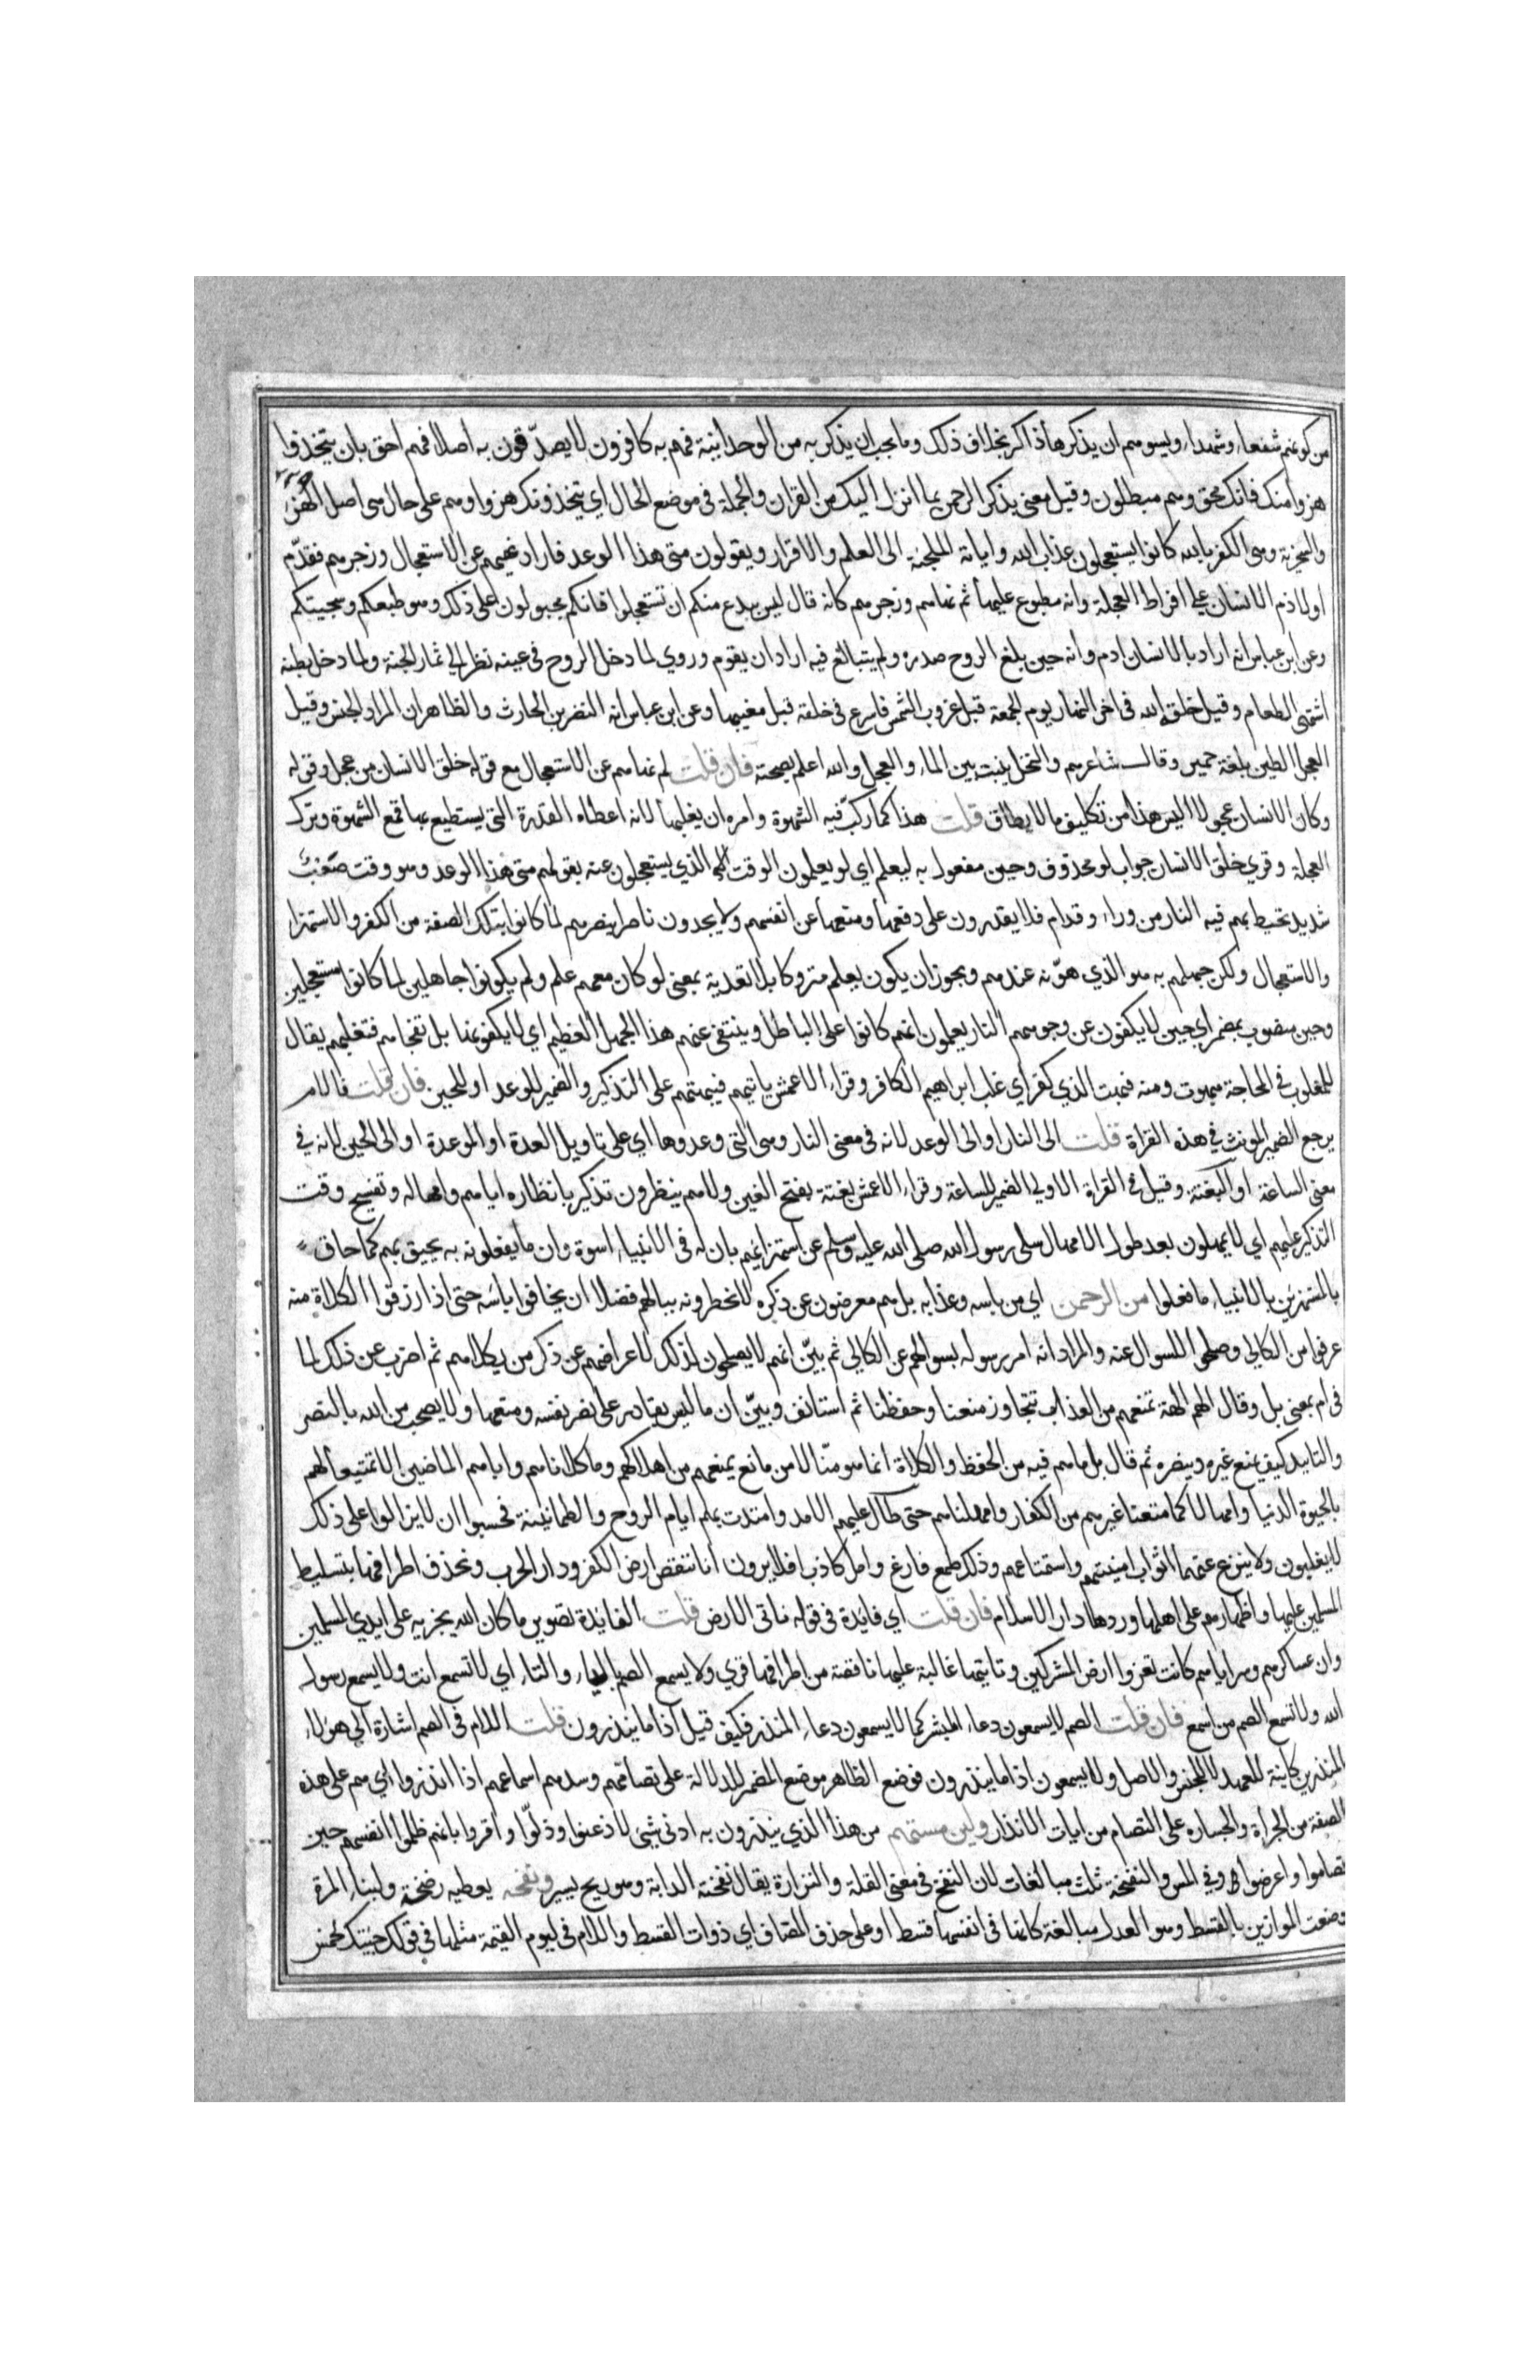 من كونهم شفعاء وشهداء ويسوءهم ان يذكرها ذاكر بخلاف ذلك وما يجب ان يذكر به من الوحدانية فهم به كافرون لا يصدّقون به اصلا فهم احق بان يتخذوا
هزوا منك فانك محق وهم مبطلون وقيل معنى بذكر الرحمن بما انزل اليك من القران والجملة في موضع الحال اي يتخذونك هزوا وهم على حال هي اصل الهزء
والسخرية وهي الكفر بالله كانوا يستعجلون عذاب الله واياته الملجئة الى العلم والاقرار ويقولون متى هذا الوعد فاراد نهيهم عن الاستعجال وزجرهم فقدّم
اولا ذم الانسان على افراط العجلة وانه مطبوع عليها ثم نهاهم وزجرهم كانه قال ليس ببدع منكم ان تستعجلوا فانكم مجبولون على ذلك وهو طبعكم وسجيتكم
وعن ابن عباس انه اراد بالانسان ادم وانه حين بلغ الروح صدره ولم يتبالغ فيه اراد ان يقوم وروي لما دخل الروح في عينه نظر الى ثمار الجنة ولما دخل بطنه
اشتهى الطعام وقيل خلقه الله في اخر النهار يوم الجمعة قبل غروب الشمس فاسرع في خلقه قبل مغيبها وعن ابن عباس انه النضر بن الحارث والظاهر ان المراد الجنس وقيل
العجل الطين بلغة حمير وقال شاعرهم والنخل ينبت بين الماء والعجل والله اعلم بصحته فان قلت لم نهاهم عن الاستعجال مع قوله خلق الانسان من عجل وقوله
وكان الانسان عجولا اليس هذا من تكليف ما لا يطاق قلت هذا كما ركّب فيه الشهوة وامره ان يغلبها لانه اعطاه القدرة التي يستطيع بها قمع الشهوة وترك
العجلة وقري خلق الانسان جواب لو محذوف وحين مفعول به ليعلم اي لو يعلمون الوقت الذي يستعجلون عنه بقولهم متى هذا الوعد وهو وقت صعب
شديد تحيط بهم فيه النار من وراء وقدام فلا يقدرون على دفعها ومنعها عن انفسهم ولا يجدون ناصرا ينصرهم لما كانوا بتلك الصفة من الكفر والاستهزاء
والاستعجال ولكن جهلهم به هو الذي هوّنه عندهم ويجوز ان يكون يعلم متروكا بلا تعدية بمعنى لو كان معهم علم ولم يكونوا جاهلين لما كانوا مستعجلين
وحين منصوب بمضمر اي حين لا يكفون عن وجوههم النار يعلمون انهم كانوا على الباطل وينتفي عنهم هذا الجهل العظيم اي لا يكفونها بل تفجاهم فتغلبهم يقال
للمغلوب في المحاجة مبهوت ومنه فبهت الذي كفر اي غلب ابراهيم الكافر وقراء الاعمش ياتيهم فيبهتهم على التذكير والضمير للوعد او للحين فان قلت فالام
يرجع الضمير المونث في هذه القراة قلت الى النار او الى الوعد لانه في معنى النار وهي التي وعدوها اي على تاويل العدة او الموعدة او الى الحين لانه في
معنى الساعة او البغتة وقيل في القراة الاولي الضمير للساعة وقراء الاعمش بغتة بفتح الغين ولا هم ينظرون تذكير بانظاره اياهم وامهاله وتفسيح وقت
التذكير عليهم اي لا يمهلون بعد طول الامهال سلى رسول الله صلى الله عليه وسلم عن استهزائهم بان له في الانبياء اسوة وان ما يفعلونه به يحيق بهم كما حاق
بالمستهزئين بالانبياء ما فعلوا من الرحمن اي من باسه وعذابه بل هم معرضون عن ذكره لا يخطرونه ببالهم فضلا ان يخافوا باسه حتى اذا رزقوا الكلاة منه
عرفوا من الكالي وصلحوا للسوال عنه والمراد انه امر رسوله بسوالهم عن الكالي ثم بيّن انهم لا يصلحون لذلك لاعراضهم عن ذكر من يكلاهم ثم اضرب عن ذلك لما
في ام بمعنى بل وقال الهم الهة تمنعهم من العذاب تتجاوز منعنا وحفظنا ثم استانف وبيّن ان ما ليس بقادر على نصر نفسه ومنعها ولا يصحب من الله بالنصر
والتاييد كيف يمنع غيره وينصره ثم قال بل ما هم فيه من الحفظ والكلاة انما هو منّا لا من مانع يمنعهم من اهلاكهم وما كلاناهم واباهم الماضين الا تمتيعا لهم
بالحيوة الدنيا وامهالا كما متعنا غيرهم من الكفار وامهلناهم حتى طال عليهم الامد وامتدت بهم ايام الروح والطمانينة فحسبوا ان لا يزالوا على ذلك
لا يغلبون ولا ينزع عنهم اثواب امنيتهم واستمتاعهم وذلك طمع فارغ وامل كاذب افلا يرون انا ننقص ارض الكفر ودار الحرب ونحذف اطرافها بتسليط
المسلمين عليها واظهارهم على اهلها وردها دار الاسلام فان قلت اي فايدة في قوله ناتي الارض قلت الفايدة تصوير ما كان الله يجريه على ايدي المسلمين
وان عساكرهم وسراياهم كانت تغزوا ارض المشركين وتاتيها غالبة عليها ناقصة من اطرافها قري ولا يسمع الصم بالياء والتاء اي لا تسمع انت ولا يسمع رسول
الله ولا تسمع الصم من اسمع فان قلت الصم لا يسمعون دعاء المبشر كما لا يسمعون دعاء المنذر فكيف قيل اذا ما ينذرون قلت اللام في الصم اشارة الى هولاء
المنذرين كاينة للعهد لا للجنس والاصل ولا يسمعون اذا ما ينذرون فوضع الظاهر موضع المضمر للدلالة على تصامّهم وسدهم اسماعهم اذا انذروا اي هم على هذه
الصفة من الجرأة والجساره على التصام من ايات الانذار ولين مستهم من هذا الذي ينذرون به ادنى شيئ لاذعنوا وذلّوا واقروا بانهم ظلموا انفسهم حين
تصاموا واعرضوا وفي المس والنفحة ثلث مبالغات لان النفح في معنى القلة والنزارة يقال نفحته الدابة وهو ريح يسير ونفحه يعطيه رضخة ولبناء المرة
وضعت الموازين بالقسط وهو العدل مبالغة كانها في انفسها قسط او على حذف المضاف اي ذوات القسط واللام في ليوم القيمة مثلها في قولك جئتك لخمس